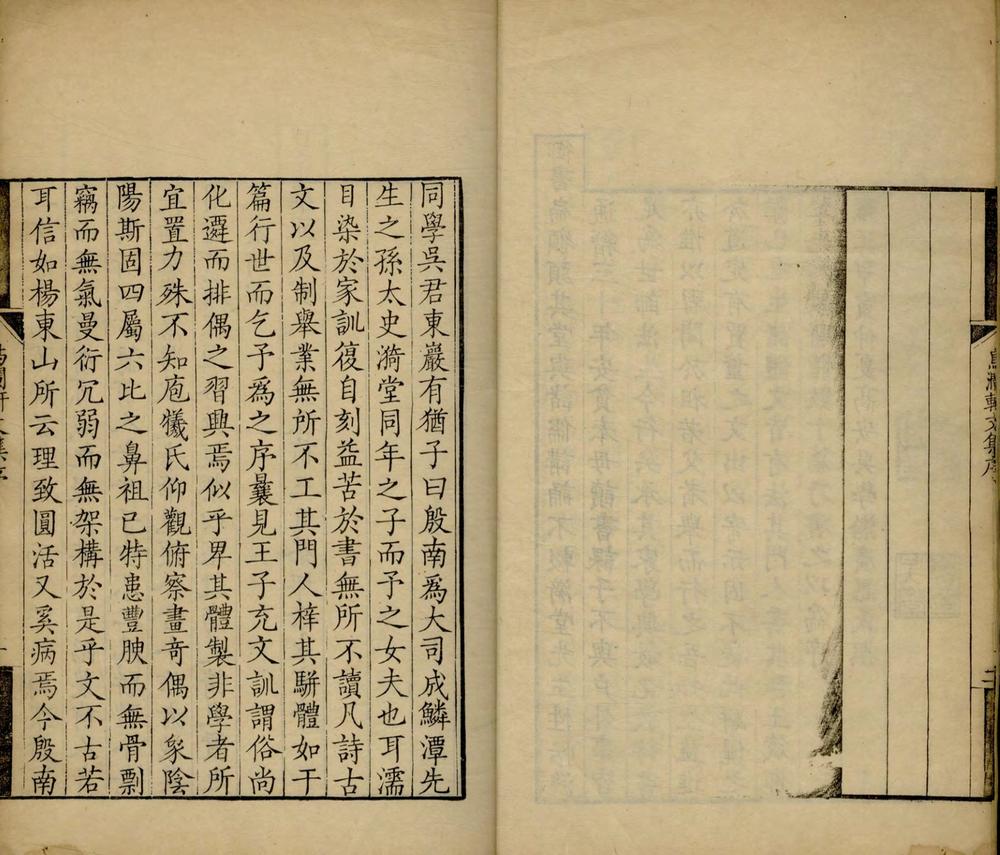 軒文集序
二
同學吳君東巖有猶子曰殷南爲大司成鱗潭先
生之孫太史漪堂同年之子而予之女夫也耳濡
目染於家訓復自刻益苦於書無所不讀凡詩古
文以及制舉業無所不工其門人梓其駢體如干
篇行世而乞予爲之序曩見王子充文訓謂俗尚
化遷而排偶之習興焉似乎卑其體製非學者所
宜置力殊不知庖犧氏仰觀俯察畫奇偶以象陰
陽斯固四屬六比之鼻祖已特患豐腴而無骨剽
竊而無氣曼衍冗弱而無架構於是乎文不古若
耳信如楊東山所云理致圓活又奚病焉今殷南
文集序
一